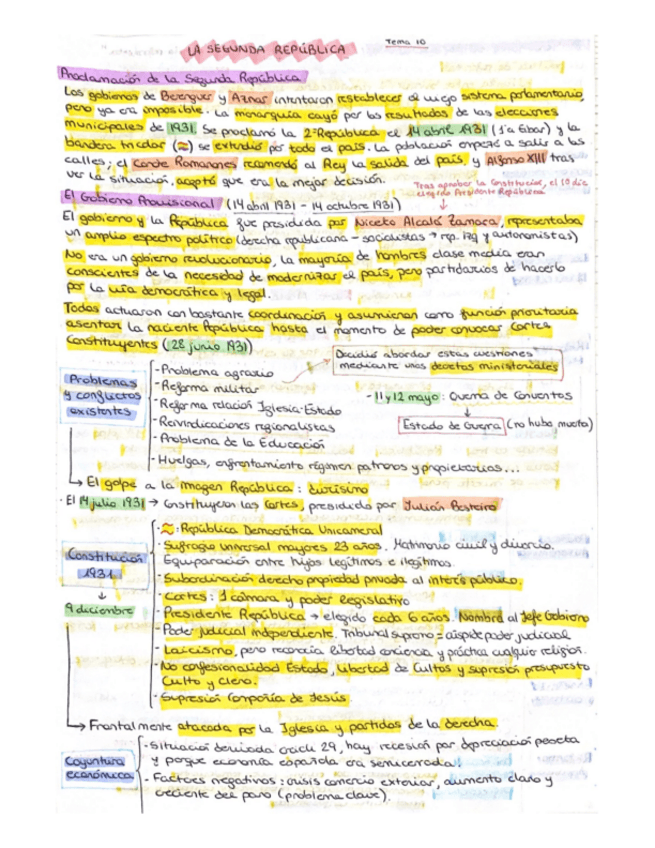 Tema 10
LA SEGUNDA REPÚBLICA
Proclamación de la Segunda República
Los gobiernos de Berenguer y Aznar intentaron restablecer el viejo sistema parlamentario,
pero ya era imposible. La monarquía cayó por los resultados de las elecciones
municipales de 1931. Se proclamó la 2ª República el 14 abril 1931 (1º a Eibar) y la
bandera tricolor (≈) se extendió por todo el país. La población empezó a salir a las
calles; el Conde Romanones recomendó al Rey la salida del país, y Alfonso XIII tras
ver la situación, aceptó que era la mejor decisión.
Tras aprobar la Constitución, el 10 dic
elegido Presidente República
El Gobierno Provisional (14 abril 1931 - 14 octubre 1931)
El gobierno y la República fue presidida por Niceto Alcalá Zamora, representaba
un amplio espectro político (derecha republicana - socialistas → rep. izq y autonomistas)
No era un gobierno revolucionario, la mayoría de hombres clase media eran
conscientes de la necesidad de modernizar el país, pero partidarios de hacerlo
por la vía democrática y legal.
Todos actuaron con bastante coordinación y asumieron como función prioritaria
asentar la naciente República hasta el momento de poder convocar Cortes
Constituyentes (28 junio 1931)
Problemas
y conflictos
existentes
- Problema agrario
Decidió abordar estas cuestiones
mediante unos decretos ministeriales
- Reforma militar
- Reforma relación Iglesia-Estado
- 11 y 12 mayo: Quema de Conventos
- Reivindicaciones regionalistas
Estado de Guerra (no hubo muerta)
- Problema de la Educación
- Huelgas, enfrentamiento régimen patronos y propietarios...
→ El golpe a la imagen República: durísimo
· El 14 julio 1931 → Constituyeron las Cortes, presidido por Julián Besteiro
Constitución
1931
9 diciembre
· ≈: República Democrática Unicameral
- Sufragio universal mayores 23 años. Matrimonio civil y divorcio.
Equiparación entre hijos legítimos e ilegítimos.
- Subordinación derecho propiedad privada al interés público.
- Cortes: 1 cámara y poder legislativo
- Presidente República → elegido cada 6 años. Nombra al Jefe Gobierno
- Poder judicial independiente. Tribunal supremo = cúspide poder judicial
- Laicismo, pero reconocía libertad conciencia y práctica cualquier religión.
- No confesionalidad Estado, libertad de Cultos y supresión presupuesto
Culto y Clero.
- Supresión Compañía de Jesús.
→ Frontalmente atacada por la Iglesia y partidos de la derecha.
Coyuntura
económica
- Situación derivada crack 29, hay recesión por depreciación peseta
y porque economía española era semicerrada!
- Factores negativos: crisis comercio exterior, aumento claro y
creciente del paro (problema clave).